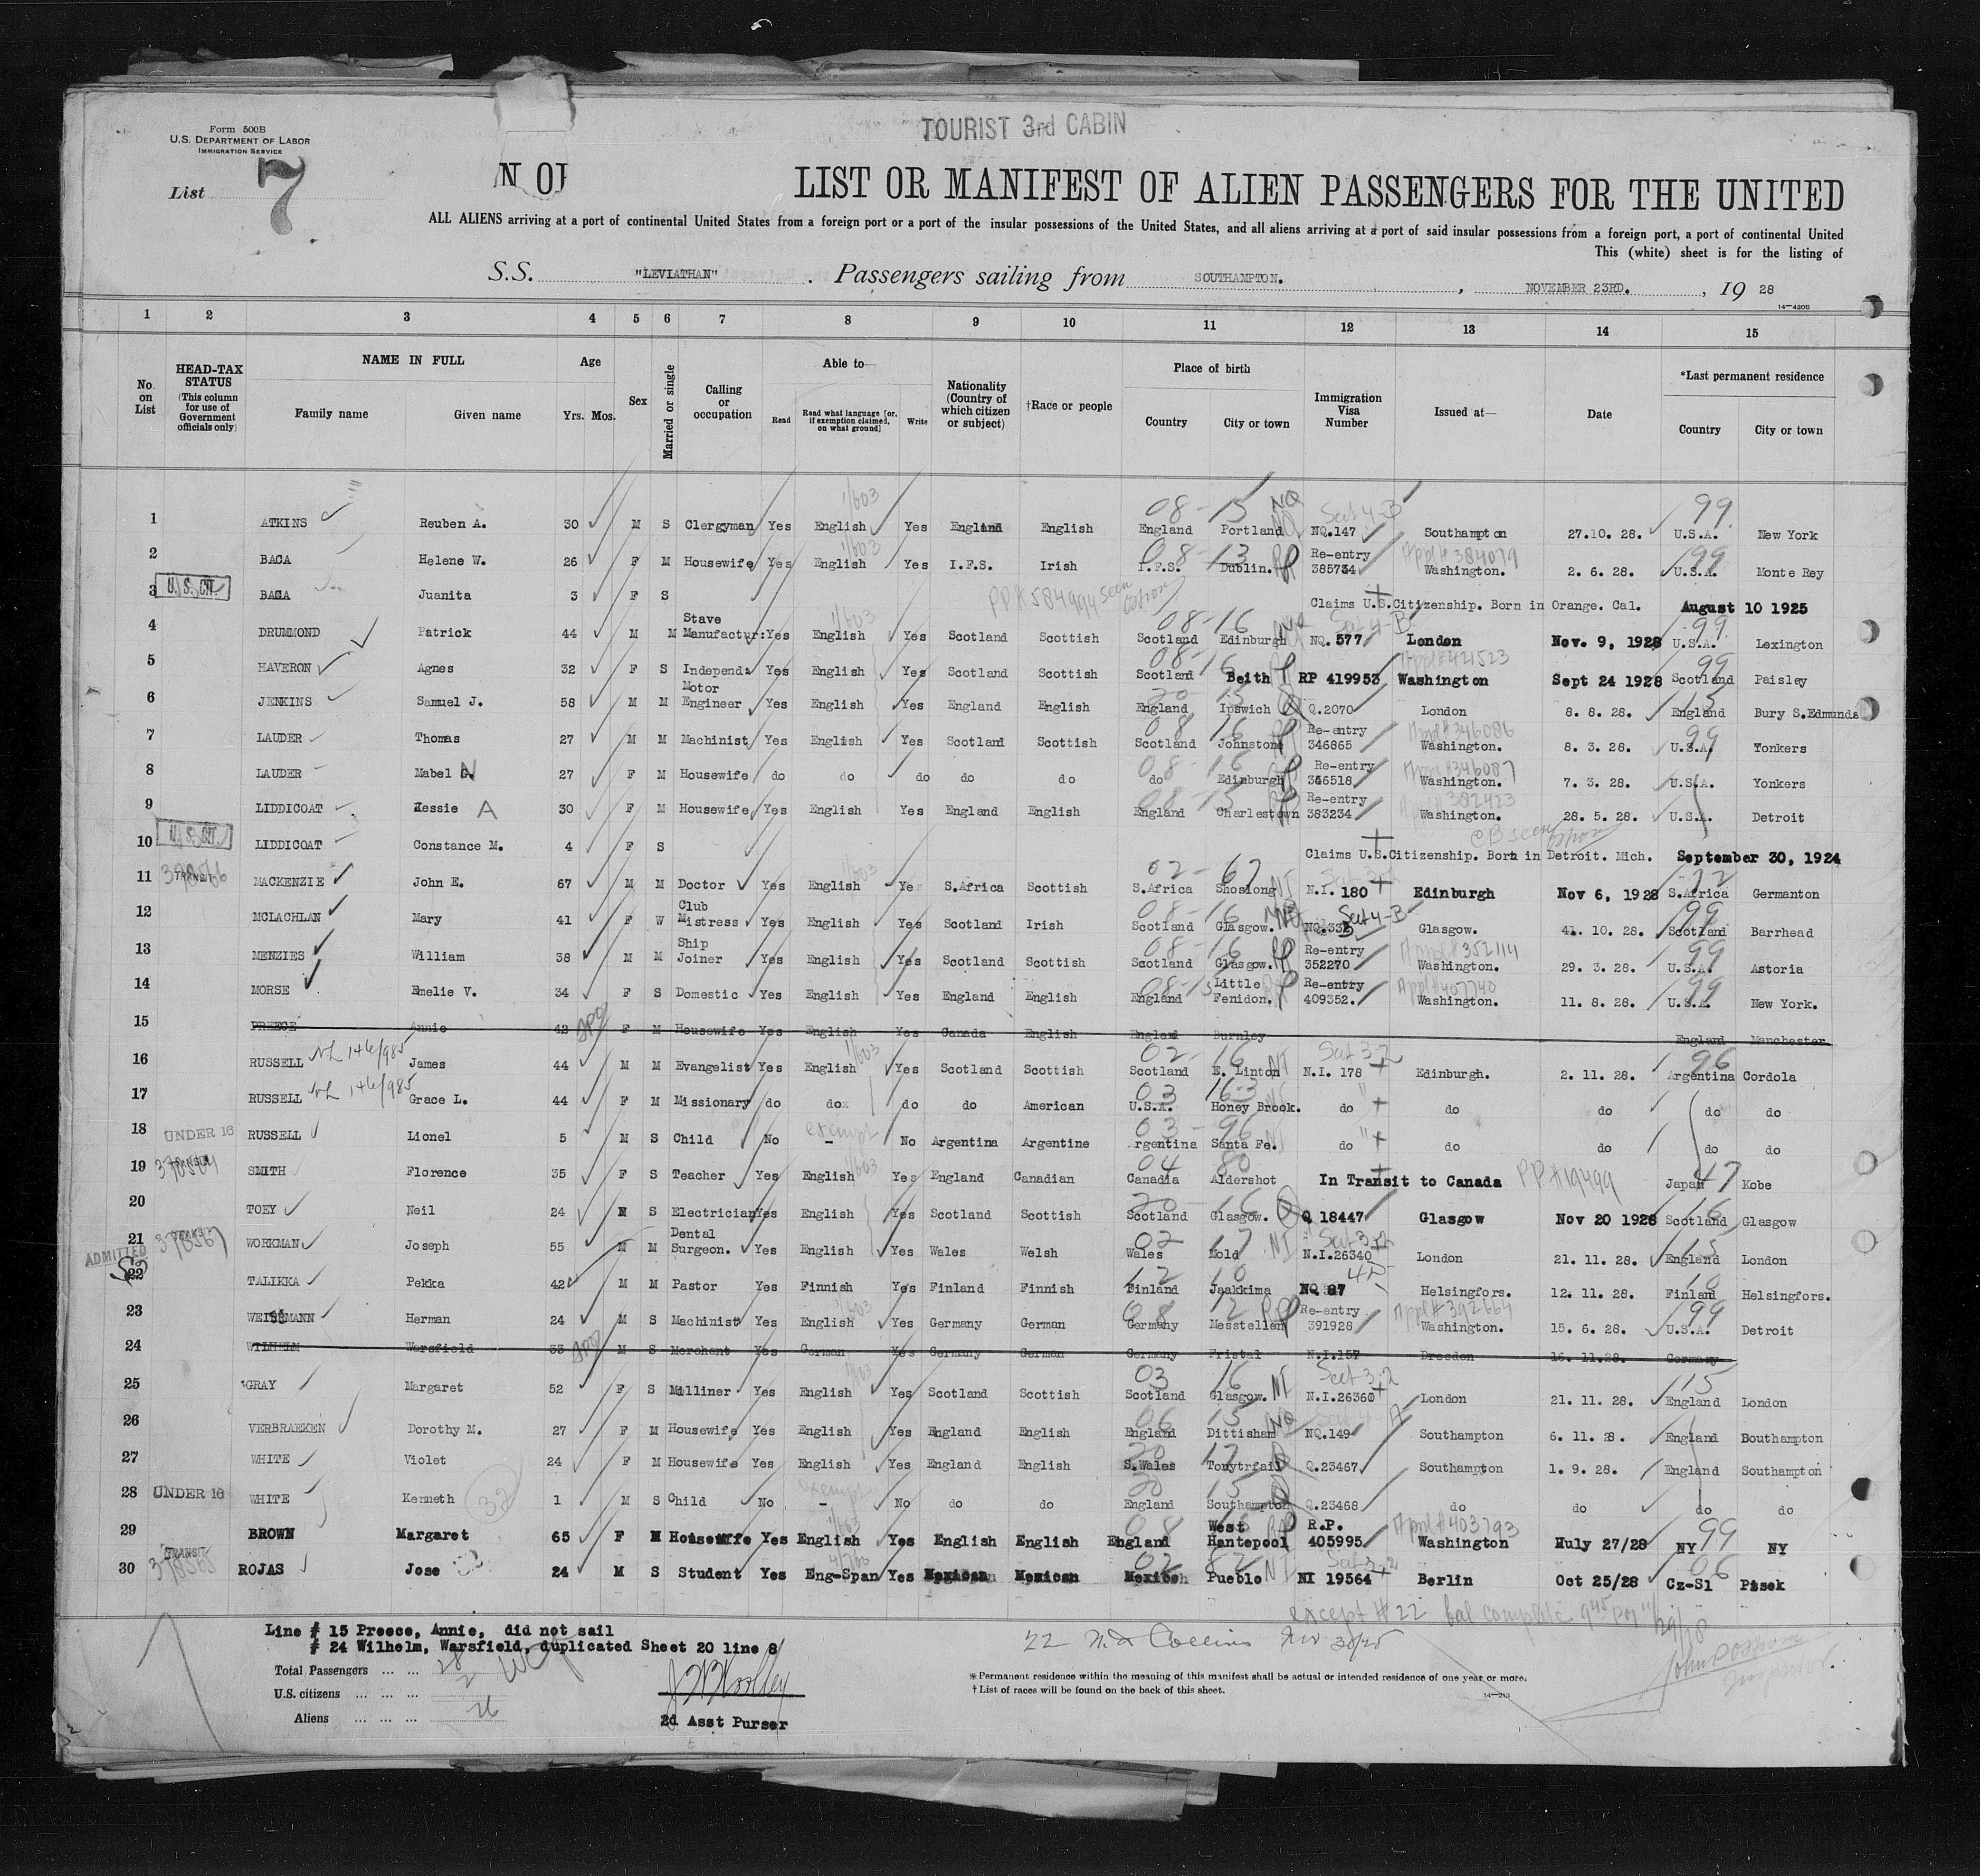 TOURIST 3rd CABIN
Form 500B
U.S. DEPARTMENT OF LABOR
IMMIGRATION SERVICE
List 7
LIST OR MANIFEST OF ALIEN PASSENGERS FOR THE UNITED
ALL ALIENS arriving at a port of continental United States from a foreign port or a port of the insular possessions of the United States, and all aliens arriving at a port of said insular possessions from a foreign port, a port of continental United
This (white) sheet is for the listing of
S.S. "LEVIATHAN" . Passengers sailing from SOUTHAMPTON. , NOVEMBER 23RD. , 19 28
14—430B
1 2 3 4 5 6 7 8 9 10 11 12 13 14 15
No. on List
HEAD-TAX STATUS (This column for use of Government officials only)
NAME IN FULL Family name Given name
Age Yrs. Mos.
Sex
Married or single
Calling or occupation
Able to— Read Read what language [or, if exemption claimed, on what ground] Write
Nationality (Country of which citizen or subject)
†Race or people
Place of birth Country City or town
Immigration Visa Number
Issued at—
Date
*Last permanent residence Country City or town
1 ATKINS Reuben A. 30 M S Clergyman Yes English Yes England English England Portland NQ.147 Southampton 27.10. 28. U.S.A. New York
2 BACA Helene W. 26 F M Housewife Yes English Yes I.F.S. Irish I.F.S. Dublin. Re-entry 385734 Washington. 2. 6. 28. U.S.A. Monte Rey
3 U.S. CIT. BACA Juanita 3 F S PP# 584994 seen Claims U.S.Citizenship. Born in Orange. Cal. August 10 1925
4 DRUMMOND Patrick 44 M M Stave Manufactur: Yes English Yes Scotland Scottish Scotland Edinburgh NQ. 577 London Nov. 9, 1928 U.S.A. Lexington
5 HAVERON Agnes 32 F S Independ: Yes English Yes Scotland Scottish Scotland Beith RP 419953 Washington Sept 24 1928 Scotland Paisley
6 JENKINS Samuel J. 58 M M Motor Engineer Yes English Yes England English England Ipswich Q.2070 London 8. 8. 28. England Bury S.Edmunds
7 LAUDER Thomas 27 M M Machinist Yes English Yes Scotland Scottish Scotland Johnstone Re-entry 346865 Washington. 8. 3. 28. U.S.A. Yonkers
8 LAUDER Mabel N 27 F M Housewife do do do do do do Edinburgh Re-entry 346518 Washington. 7. 3. 28. U.S.A. Yonkers
9 LIDDICOAT Hessie A 30 F M Housewife Yes English Yes England English England Charlestown Re-entry 383234 Washington. 28. 5. 28. U.S.A. Detroit
10 U.S. CIT. LIDDICOAT Constance M. 4 F S Claims U.S.Citizenship. Born in Detroit. Mich. September 30, 1924
11 MACKENZIE John E. 67 M M Doctor Yes English Yes S.Africa Scottish S.Africa Shoslong N.I. 180 Edinburgh Nov 6, 1928 S.Africa Germanton
12 MCLACHLAN Mary 41 F W Club Mistress Yes English Yes Scotland Irish Scotland Glasgow. Sect 4-B Glasgow. 41. 10. 28. Scotland Barrhead
13 MENZIES William 38 M M Ship Joiner Yes English Yes Scotland Scottish Scotland Glasgow. Re-entry 352270 Washington. 29. 3. 28. U.S.A. Astoria
14 MORSE Emelie V. 34 F S Domestic Yes English Yes England English England Little Fenidon. Re-entry 409352. Washington. 11. 8. 28. U.S.A. New York.
15 PREECE Annie 42 F M Housewife Yes English Yes Canada English England Burnley England Manchester
16 RUSSELL James 44 M M Evangelist Yes English Yes Scotland Scottish Scotland E. Linton N.I. 178 Edinburgh. 2. 11. 28. Argentina Cordola
17 RUSSELL Grace L. 44 F M Missionary do do do do American U.S.A. Honey Brook. do do do do do
18 UNDER 16 RUSSELL Lionel 5 M S Child No exempt – No Argentina Argentine Argentina Santa Fe. do do do do do
19 SMITH Florence 35 F S Teacher Yes English Yes England Canadian Canadia Aldershot In Transit to Canada PP#19499 Japan Kobe
20 TOEY Neil 24 M S Electrician Yes English Yes Scotland Scottish Scotland Glasgow. Q 18447 Glasgow Nov 20 1928 Scotland Glasgow
21 WORKMAN Joseph 55 M M Dental Surgeon. Yes English Yes Wales Welsh Wales Mold N.I.26340 London 21. 11. 28. England London
ADMITTED 22 TALIKKA Pekka 42 M M Pastor Yes Finnish Yes Finland Finnish Finland Jaakkima NQ 87 Helsingfors. 12. 11. 28. Finland Helsingfors.
23 WEISSMANN Herman 24 M S Machinist Yes English Yes Germany German Germany Messtellen Re-entry 391928 Washington. 15. 6. 28. U.S.A. Detroit
24 WILHELM Warsfield 33 M S Merchant Yes German Yes Germany German Germany Fristal N.I.157 Dresden 16. 11.28. Germany
25 GRAY Margaret 52 F S Milliner Yes English Yes Scotland Scottish Scotland Glasgow. N.I.26360 London 21. 11. 28. England London
26 VERBRAEKEN Dorothy M. 27 F M Housewife Yes English Yes England English England Dittisham NQ.149 Southampton 6. 11. 28. England Bouthampton
27 WHITE Violet 24 F M Housewife Yes English Yes England English S.Wales Tonytrfail Q.23467 Southampton 1. 9. 28. England Southampton
28 UNDER 16 WHITE Kenneth 1 M S Child No exempt – No do do England Southampton Q.23468 do do do do
29 BROWN Margaret 65 F M Housewife Yes English Yes English English England West Hantepool R.P. 405995 Washington Huly 27/28 NY NY
30 TRANSIT ROJAS Jose 24 M S Student Yes Eng-Span Yes Mexican Mexican Mexico Pueblo NI 19564 Berlin Oct 25/28 Cz-Sl Pisek
except #22
Line # 15 Preece, Annie, did not sail
# 24 Wilhelm, Warsfield, duplicated Sheet 20 line 8
Total Passengers ... ... 28
U.S. citizens ... ... ... 2
Aliens ... ... ... 26
2d Asst Purser
* Permanent residence within the meaning of this manifest shall be actual or intended residence of one year or more.
† List of races will be found on the back of this sheet.
14—213
Inspector.